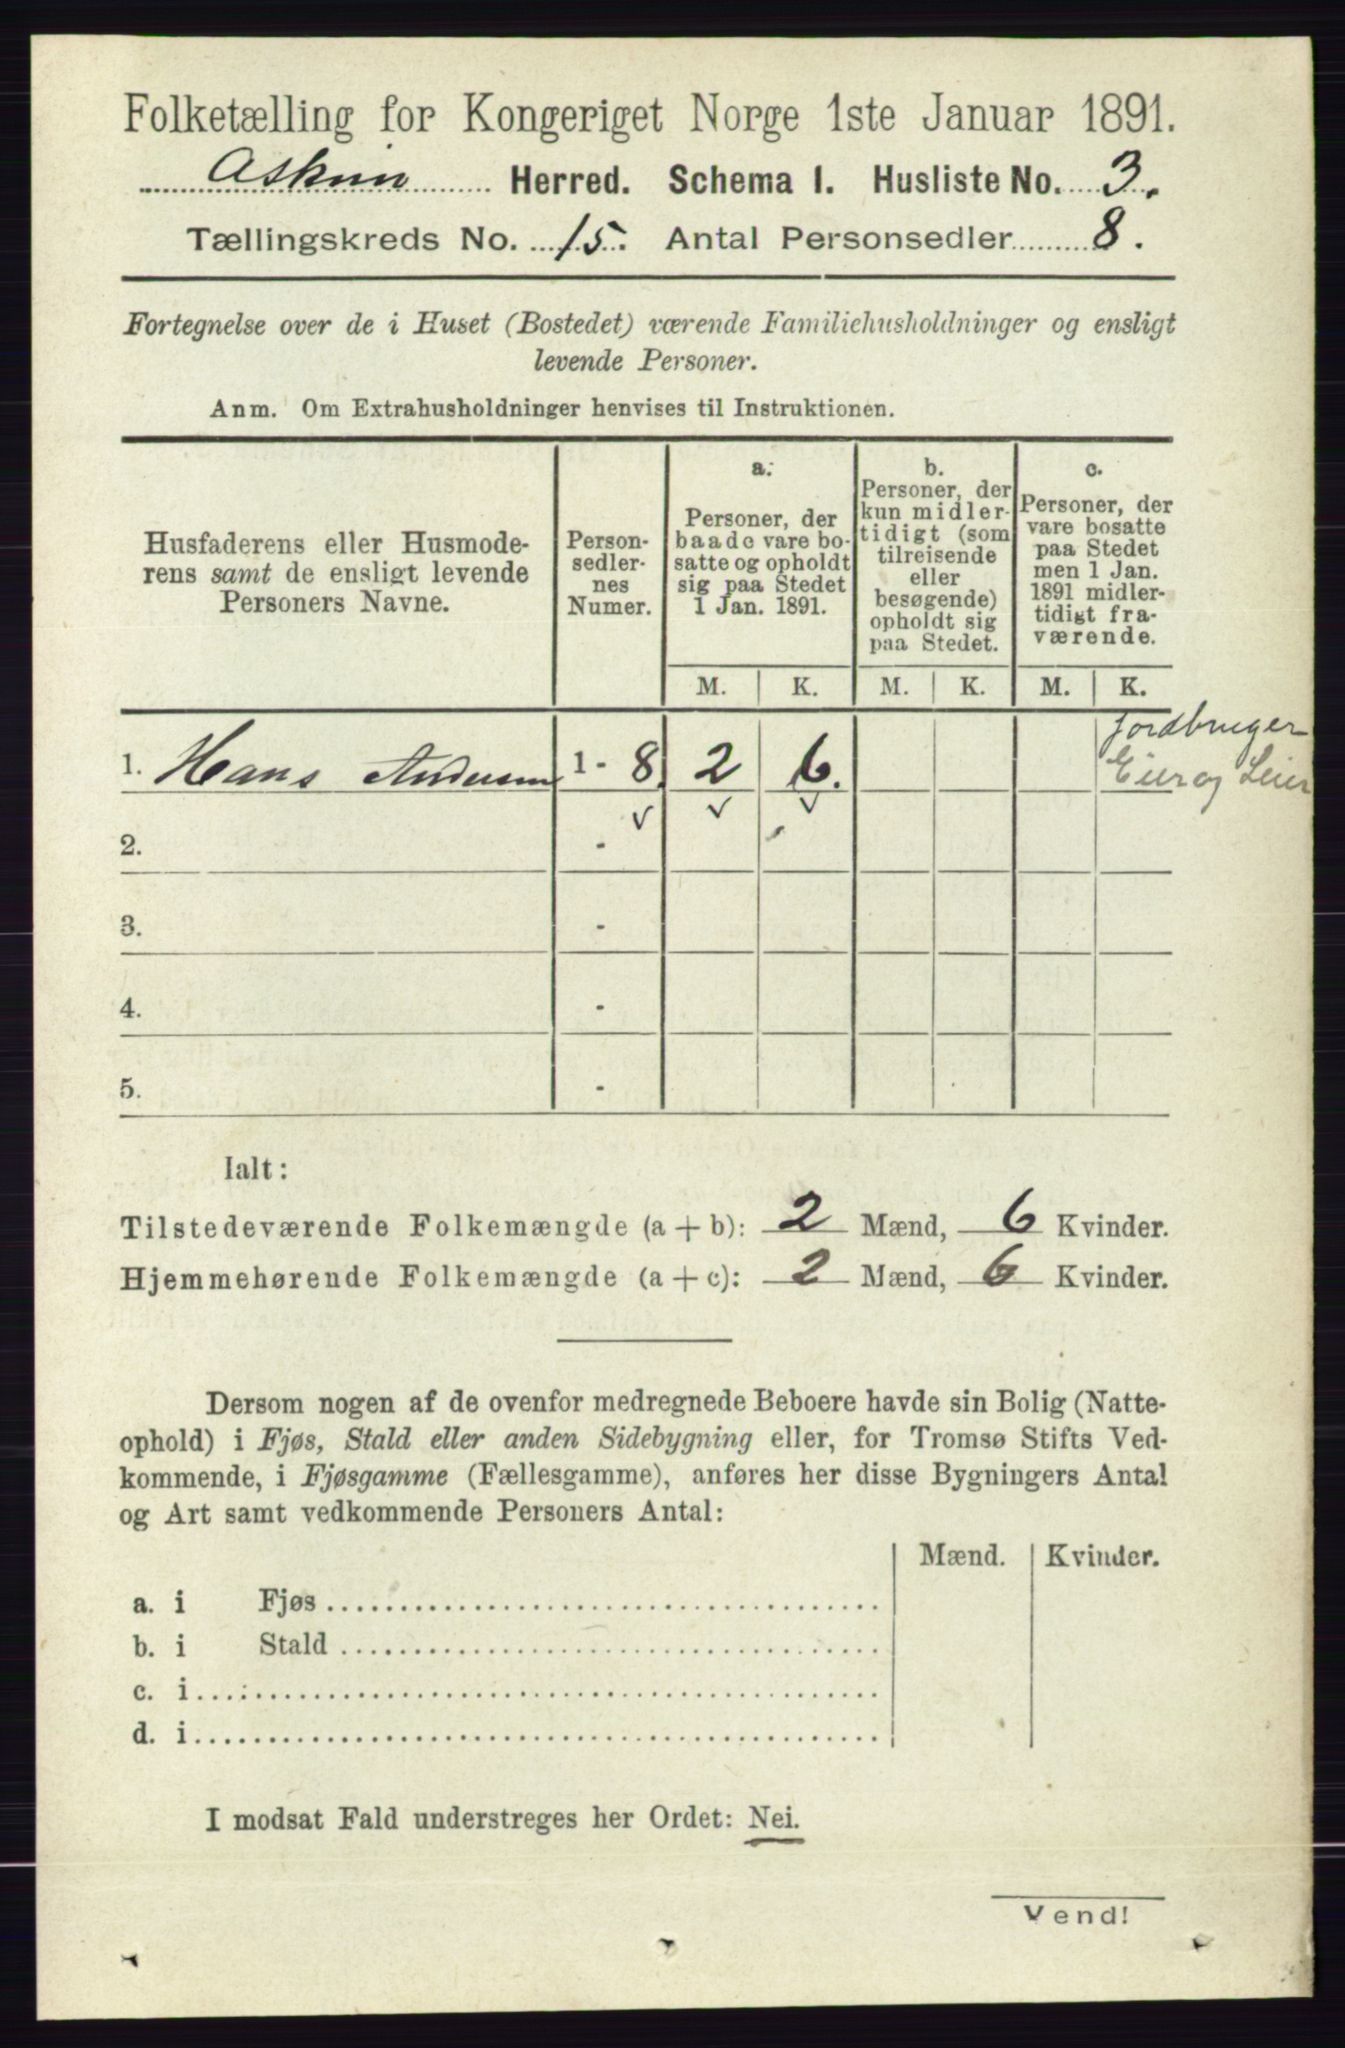 Folketælling for Kongeriget Norge 1ste Januar 1891.
Askim Herred. Schema I. Husliste No. 3.
Tællingskreds No. 15. Antal Personsedler 8.
Fortegnelse over de i Huset (Bostedet) værende Familiehusholdninger og ensligt
levende Personer.
Anm. Om Extrahusholdninger henvises til Instruktionen.
Husfaderens eller Husmode-
rens samt de ensligt levende
Personers Navne.
Person-
sedler-
nes
Numer.
a.
Personer, der
baade vare bo-
satte og opholdt
sig paa Stedet
1 Jan. 1891.
b.
Personer, der
kun midler-
tidigt (som
tilreisende
eller
besøgende)
opholdt sig
paa Stedet.
c.
Personer, der
vare bosatte
paa Stedet
men 1 Jan.
1891 midler-
tidigt fra-
værende.
M. K. M. K. M. K.
Jordbruger
1. Hans Andersen 1 - 8 2 6. Eier og Leier
2. -
3. -
4. -
5. -
Ialt:
Tilstedeværende Folkemængde (a + b): 2 Mænd, 6 Kvinder.
Hjemmehørende Folkemængde (a + c): 2 Mænd, 6 Kvinder.
Dersom nogen af de ovenfor medregnede Beboere havde sin Bolig (Natte-
ophold) i Fjøs, Stald eller anden Sidebygning eller, for Tromsø Stifts Ved-
kommende, i Fjøsgamme (Fællesgamme), anføres her disse Bygningers Antal
og Art samt vedkommende Personers Antal:
Mænd. Kvinder.
a. i Fjøs
b. i Stald
c. i
d. i
I modsat Fald understreges her Ordet: Nei.
Vend!